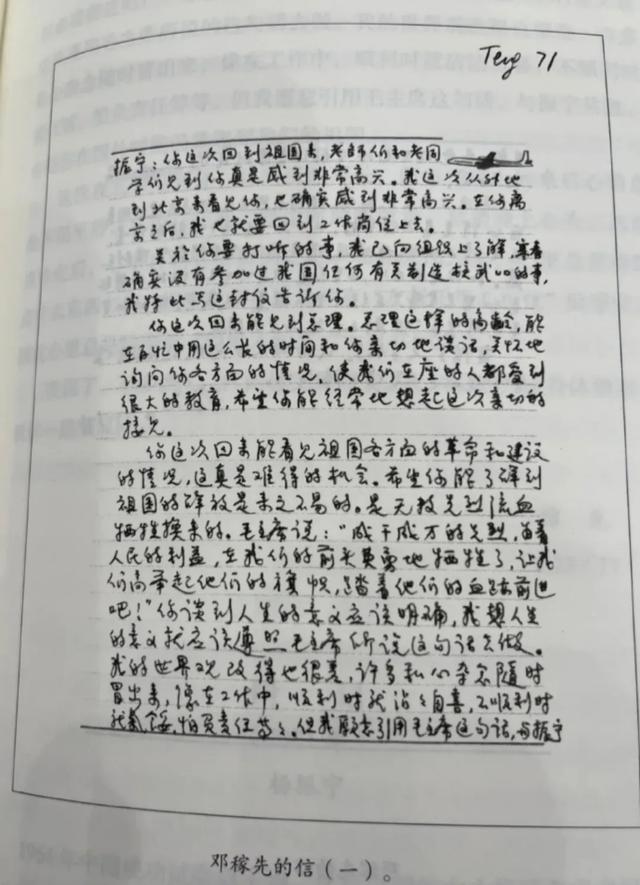 Teng 71
振宁：你这次回到祖国来，老师们和老同
学们见到你真是感到非常高兴。我这次从外地
到北京来看见你，也确实感到非常高兴。在你离
京之后，我也就要回到工作岗位上去。
关于你要打听的事，我已向组织上了解，寒春
确实没有参加过我国任何有关制造核武器的事，
我特此写这封信告诉你。
你这次回来能见到总理。总理这样的高龄，能
在百忙中用这么长的时间和你亲切地谈话，关怀地
询问你各方面的情况，使我们在座的人都受到
很大的教育，希望你能经常地想起这次亲切的
接见。
你这次回来能看见祖国各方面的革命和建设
的情况，这真是难得的机会。希望你能了解到
祖国的解放是来之不易的。是无数先烈流血
牺牲换来的。毛主席说：“成千成万的先烈，为着
人民的利益，在我们的前头英勇地牺牲了，让我
们高举起他们的旗帜，踏着他们的血迹前进
吧！”你谈到人生的意义应该明确，我想人生
的意义就应该遵照毛主席所说这句话去做。
我的世界观改得也很差，许多私心杂念随时
冒出来，像在工作中，顺利时就沾沾自喜，不顺利时
就气馁，怕负责任等等。但我愿意引用毛主席这句话，与振宁
邓稼先的信（一）。